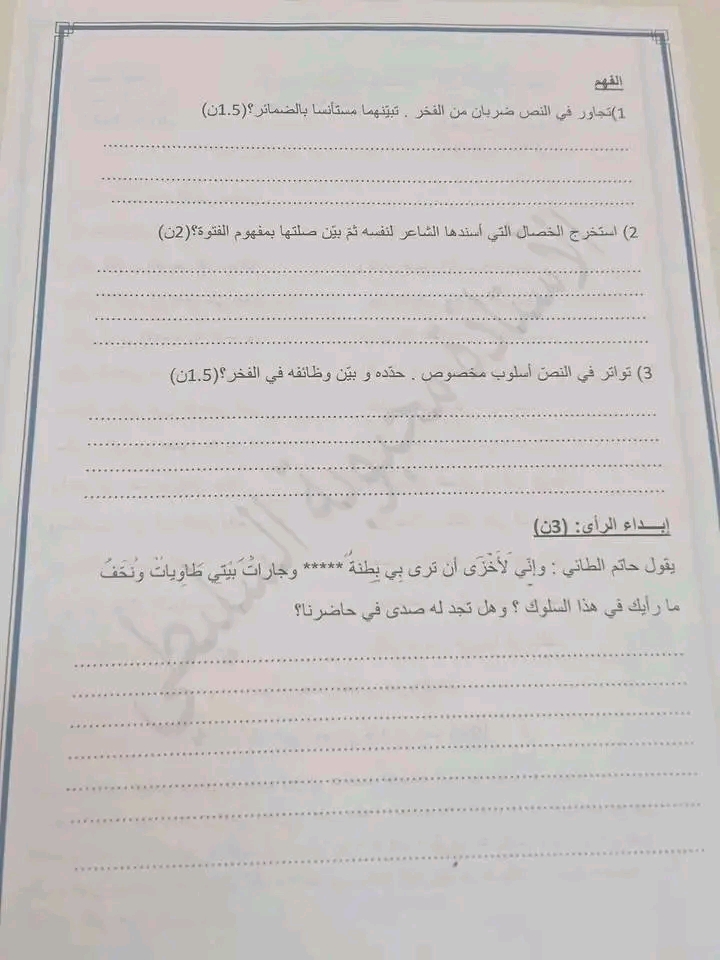 الفهم
1)تجاور في النص ضربان من الفخر . تبيّنهما مستأنسا بالضمائر؟(1.5ن)
2) استخرج الخصال التي أسندها الشاعر لنفسه ثمّ بيّن صلتها بمفهوم الفتوة؟(2ن)
3) تواتر في النصّ أسلوب مخصوص . حدّده و بيّن وظائفه في الفخر؟(1.5ن)
إبـــداء الرأى: (3ن)
يقول حاتم الطائي : وإنّي لَأخْزَى أن ترى بِي بِطنةً ***** وجاراتُ بَيْتِي طَاوِياتٌ ونُحَّفُ
ما رأيك في هذا السلوك ؟ وهل تجد له صدى في حاضرنا؟
الاستاذة محبوبة السليطي